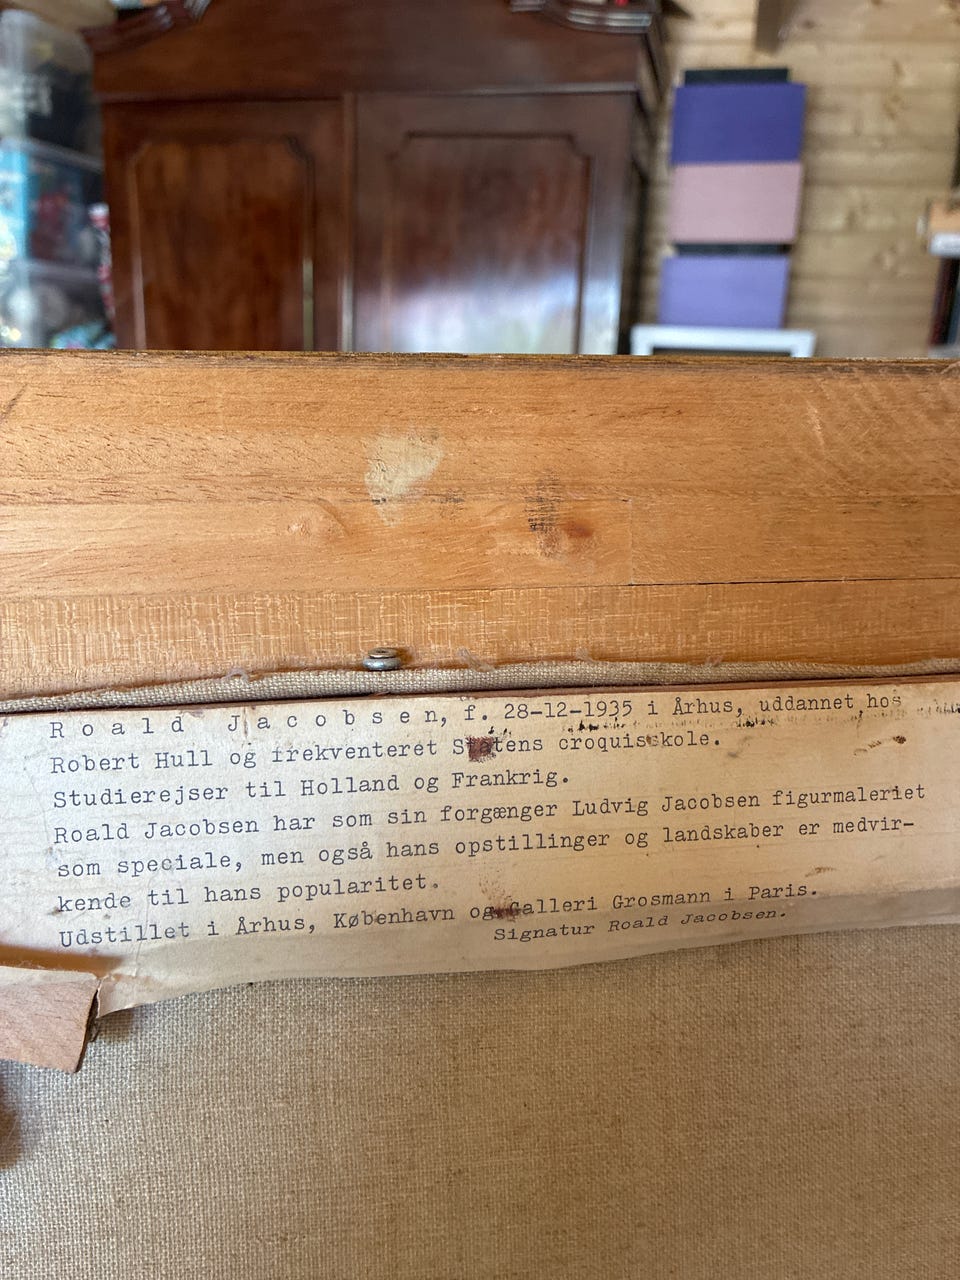 Roald Jacobsen, f. 28-12-1935 i Århus, uddannet hos
Robert Hull og frekventeret Statens croquisskole.
Studierejser til Holland og Frankrig.
Roald Jacobsen har som sin forgænger Ludvig Jacobsen figurmaleriet
som speciale, men også hans opstillinger og landskaber er medvir-
kende til hans popularitet.
Udstillet i Århus, København og Galleri Grosmann i Paris.
Signatur Roald Jacobsen.